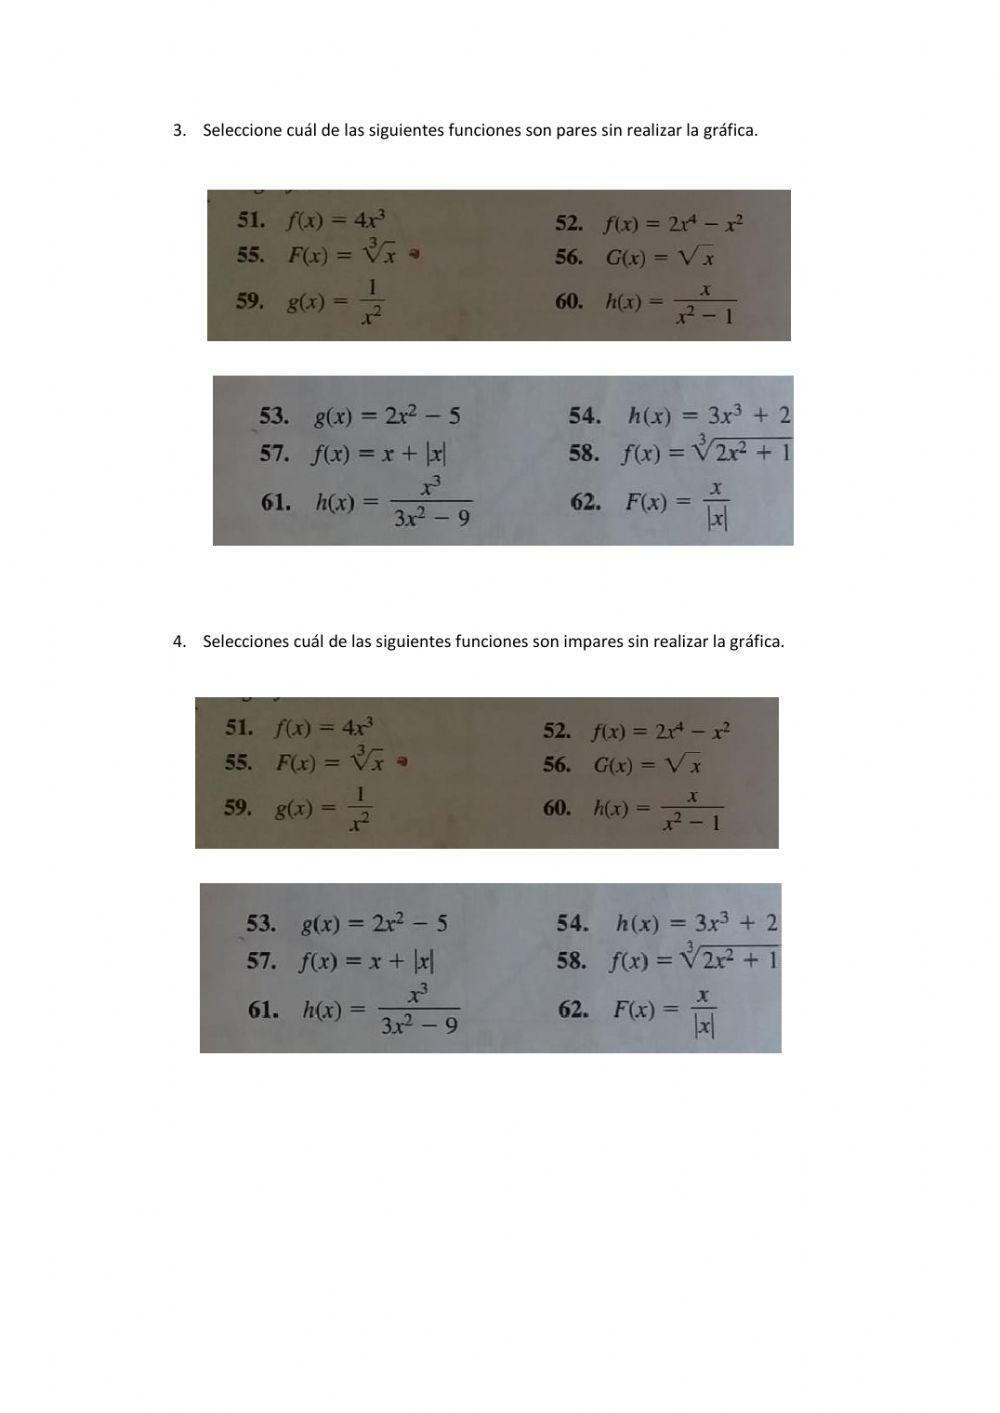 3. Seleccione cuál de las siguientes funciones son pares sin realizar la gráfica.
51. f(x) = 4x³ 52. f(x) = 2x⁴ − x²
55. F(x) = ∛x 56. G(x) = √x
59. g(x) = 1/x² 60. h(x) = x/(x² − 1)
53. g(x) = 2x² − 5 54. h(x) = 3x³ + 2
57. f(x) = x + |x| 58. f(x) = ∛(2x² + 1)
61. h(x) = x³/(3x² − 9) 62. F(x) = x/|x|
4. Selecciones cuál de las siguientes funciones son impares sin realizar la gráfica.
51. f(x) = 4x³ 52. f(x) = 2x⁴ − x²
55. F(x) = ∛x 56. G(x) = √x
59. g(x) = 1/x² 60. h(x) = x/(x² − 1)
53. g(x) = 2x² − 5 54. h(x) = 3x³ + 2
57. f(x) = x + |x| 58. f(x) = ∛(2x² + 1)
61. h(x) = x³/(3x² − 9) 62. F(x) = x/|x|